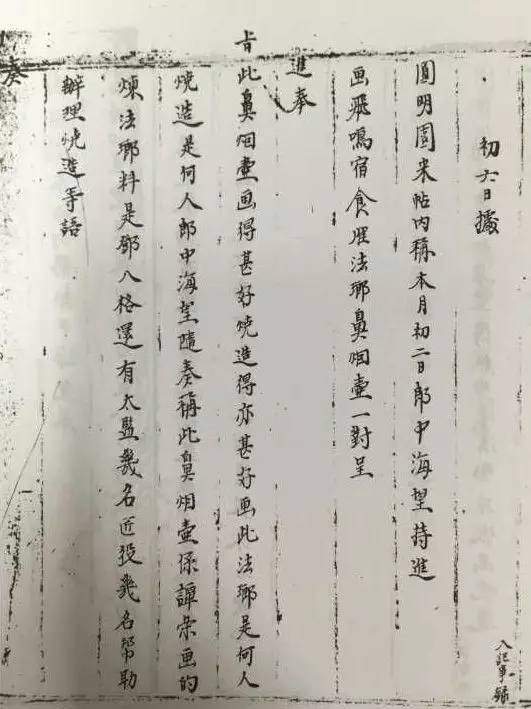 初六日據
圓明園來帖內稱本月初二日郎中海望持進
画飛鳴宿食雁法瑯鼻烟壺一對呈
進奉
旨此鼻烟壺画得甚好燒造得亦甚好画此法瑯是何人
燒造是何人郎中海望隨奏稱此鼻烟壺係譚榮画的
煉法瑯料是鄧八格還有太監幾名匠役幾名帮助
辦理燒造等語
奏
入記事錄